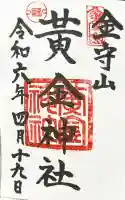 金守山
黄金神社
令和六年四月十九日